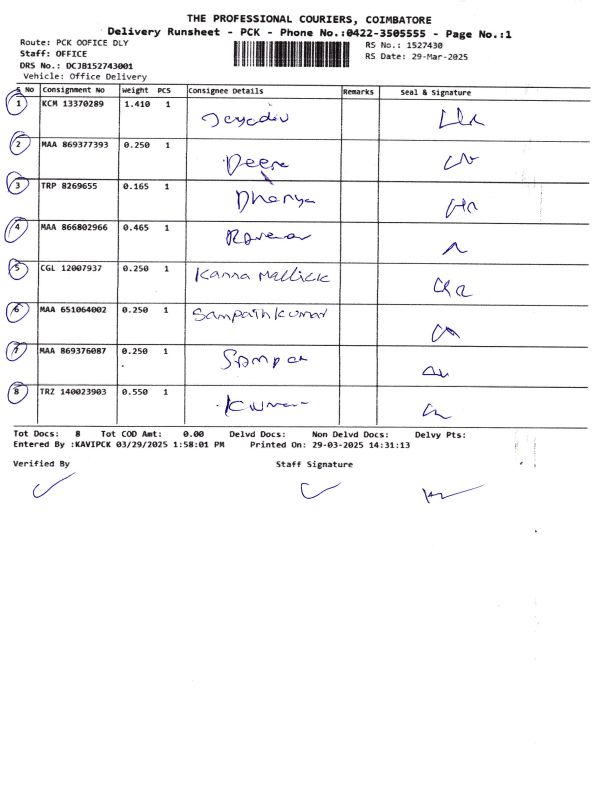 THE PROFESSIONAL COURIERS, COIMBATORE
Delivery Runsheet - PCK - Phone No.:0422-3505555 - Page No.:1
Route: PCK OOFICE DLY
Staff: OFFICE
DRS No.: DCJB152743001
Vehicle: Office Delivery
RS No.: 1527430
RS Date: 29-Mar-2025
S No Consignment No Weight PCS Consignee Details Remarks Seal & Signature
1 KCM 13370289 1.410 1
2 MAA 869377393 0.250 1
3 TRP 8269655 0.165 1 Dhanya
4 MAA 866802966 0.465 1
5 CGL 12007937 0.250 1 Kanna Mallick
6 MAA 651064002 0.250 1 Sampath kumar
7 MAA 869376087 0.250 1
8 TRZ 140023903 0.550 1 Kumar
Tot Docs: 8 Tot COD Amt: 0.00 Delvd Docs: Non Delvd Docs: Delvy Pts:
Entered By :KAVIPCK 03/29/2025 1:58:01 PM Printed On: 29-03-2025 14:31:13
Verified By Staff Signature